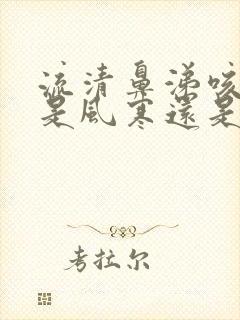 流清鼻涕咳
是風寒還是
考拉尔